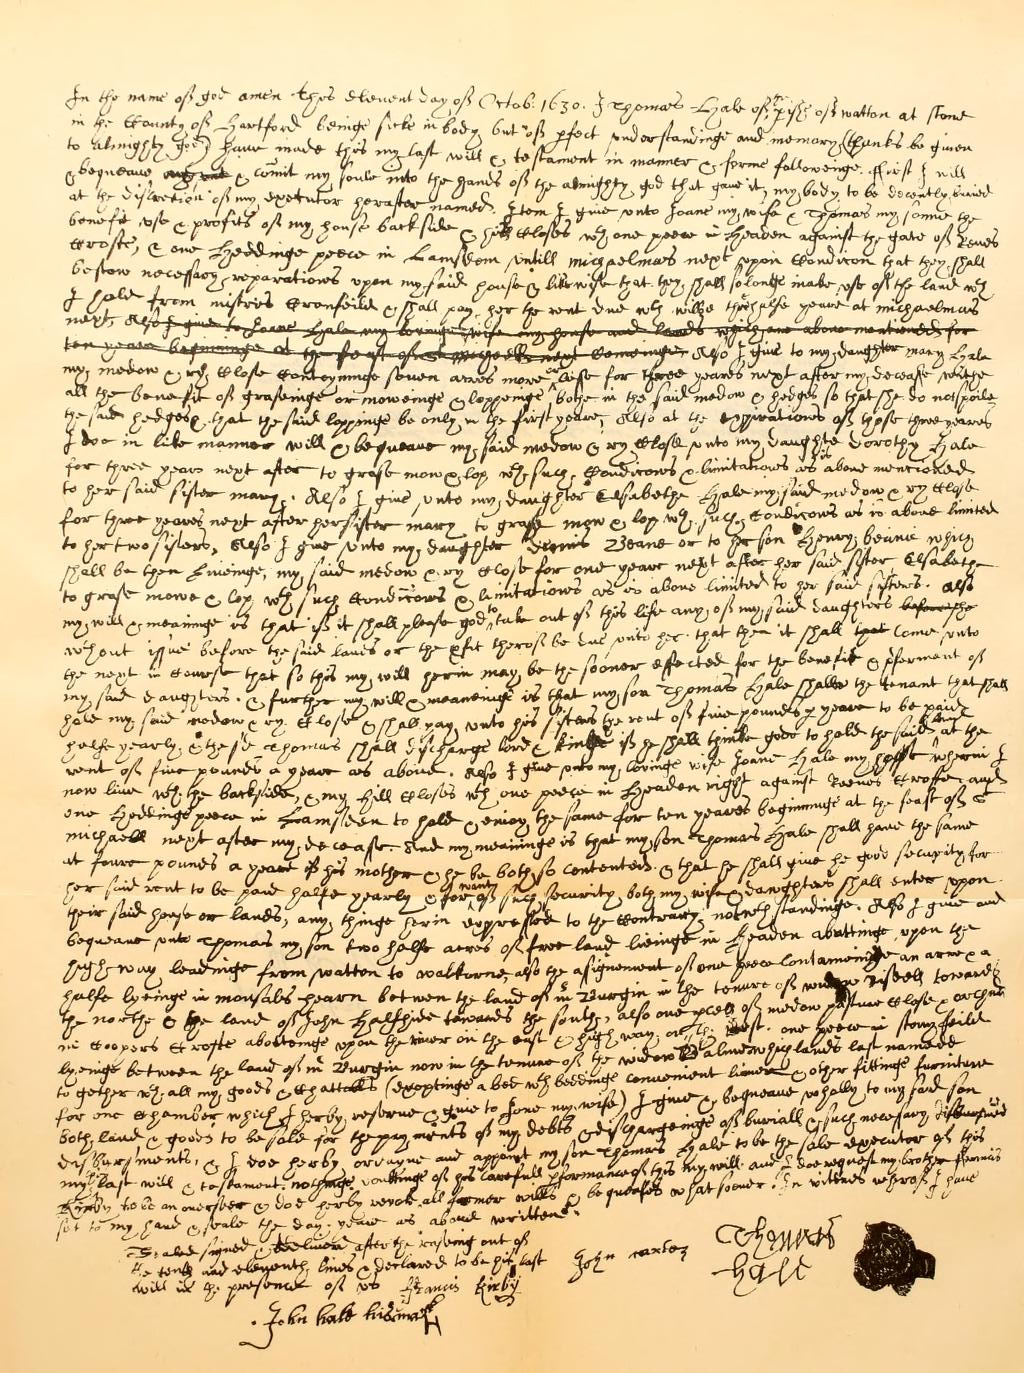 In the name of god amen this eleuent day of Octob: 1630. I Thomas Hale of the pish of watton at stone
in the County of Hartford beinge sicke in body but of pfect understandinge and memory (thanks be giuen
to Almighty god) haue made this my last will & testament in manner & forme followeinge. ffirst I will
& bequeaue & comit my soule into the hands of the almighty god that gaue it, my body to be decently buried
at the discretion of my executor herafter named. Item I giue unto Joane my wife & Thomas my sonne the
benefit use & profits of my house backside & hill Closes wth one peece in Headen against the gate of Reues
Crofte, & one Heddinge peece in Lamsden untill michaelmas next upon Condicon that they shall
bestow necessary reparations upon my said house & likewise that they shall so longe make use of the land wch
I hold from mistris Cronfeild & shall pay her the rent due wch wilbe this halfe yeare at michaelmas
next, Also I giue to Joane Hale my louinge wife my house and lands which are aboue mentioned for
ten yeares beginninge at the feast of st michaell next Comeinge. Also I giue to my daughter mary Hale
my medow & ry Close Conteyninge seuen acres more or lesse for three yeares next after my decease withe
all the benefit of graseinge or moweinge & loppeinge bothe in the said medow & hedges so that she do not spoile
the said hedges & that the said loppinge be only in the first yeare, Also at the expirations of those three yeares
I doe in like manner will & bequeaue my said medow & ry Close unto my daughter Dorothy Hale
for three yeares next after to grase mow & lop wth such Condicons & limitations as is aboue mentioned
to her said sister mary. Also I giue unto my daughter Elsabethe Hale my said medow & ry Close
for three yeares next after her sister mary to grase mow & lop wth such Condicons as is aboue limited
to her two sisters, Also I giue unto my daughter Beane or to her son Henry beane which
shall be then liueinge, my said medow & ry Close for one yeare next after her said sister Elsabethe
to grase mowe & lop wth such Condicons & limitations as is aboue limited to her said sisters. Also
my will & meaninge is that if it shall please god to take out of this life any of my said daughters before she
wthout issue before the said lands or the pfit therof be due unto her that then it shall that come unto
the next in Course that so this my will herin may be the sooner effected for the benefit & pferment of
my said daughters. & further my will & meaneinge is that my son Thomas Hale shalbe the tenant that shall
hold my said medow & ry Close & shall pay unto his sisters the rent of fiue pounds p yeare to be paid
halfe yearly, & the sd Thomas shall discharge lord & kinge if he shall thinke good to hold the said land at the
rent of fiue pounds a yeare as aboue. Also I giue unto my louinge wife Joane Hale my house wherin I
now liue wth the backside, & my Hill Closes wth one peece in Headen right against Reeues Croffe and
one Heddinge peece in Lamsden to hold & enioy the same for ten yeares beginninge at the feast of St
michaell next after my decease. And my meaninge is that my son Thomas Hale shall haue the same
at foure pounds a yeare if his mother & he be both so contented & that he shall giue he good security for
her said rent to be paid halfe yearly & for want of such security both my wife & daughters shall enter upon
their said house or lands, any thinge herin expressed to the Contrary notwthstandinge. Also I giue and
bequeaue unto Thomas my son two halfe acres of free land lieinge in Headen abuttinge upon the
high way leadinge from watton to walkurne, also the asignement of one peece containeinge an acre & a
halfe lyeinge in monsals hearn betwen the land of mr Burgin in the tenure of widow towards
the northe & the land of John Halfhide towards the south, also one pcell of medow pasture Close & orchard
in Coopers Crofte aboteinge upon the riuer on the east & high way on the west. one peece in stony feild
lyeinge between the land of mr Burgin now in the tenure of the widow which lands last named
to gether wth all my goods & Chattells (exceptinge a bed wth beddinge conuenient linnen & other fittinge furniture
for one Chamber which I herby reserue & giue to Jone my wife) I giue & bequeaue wholly to my said son
both land & goods to be sold for the payments of my debts & dischargeinge of buriall & such necessary disburssed
disbursments, & I doe herby ordayne and appoynt my son Thomas Hale to be the sole executor of this
my last will & testament. nothinge doubtinge of his carefull pformance of this my will. and I doe request my brother ffrancis
Kirby to be an ouerseer & doe herby reuoke all former wills & bequestes what soeuer. In witnes wherof I haue
set to my hand & seale the day & yeare as aboue written.
Sealed signed & deliuerd after the raseing out of
the tenth and eleuenth lines & declared to be his last
will in the presence of us
Francis Kirby
John
Thomas
Hale
John hale his mark